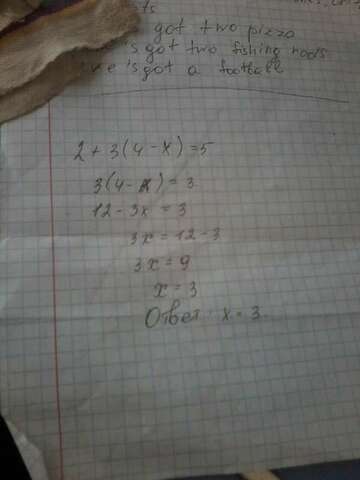 got two pizza
's got two fishing rods
's got a football
2 + 3(4 - x) = 5
3(4 - x) = 3
12 - 3x = 3
3x = 12 - 3
3x = 9
x = 3
Ответ: x = 3.